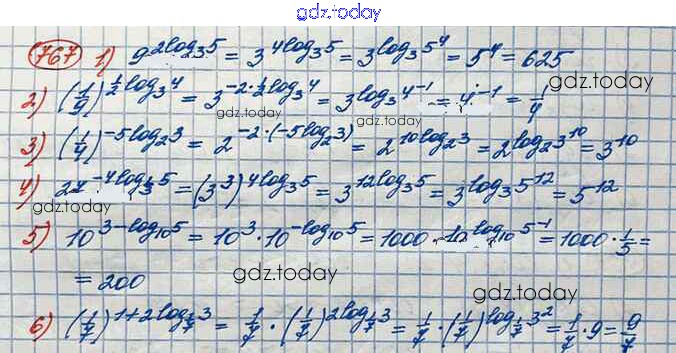 gdz.today
767 1) 9^{2log_3 5} = 3^{4log_3 5} = 3^{log_3 5^4} = 5^4 = 625
gdz.today
2) (1/9)^{1/2 log_3 4} = 3^{-2·1/2 log_3 4} = 3^{log_3 4^{-1}} = 4^{-1} = 1/4
gdz.today gdz.today
3) (1/4)^{-5log_2 3} = 2^{-2·(-5log_2 3)} = 2^{10log_2 3} = 2^{log_2 3^{10}} = 3^{10}
4) 27^{-4log_{1/3} 5} = (3^3)^{4log_3 5} = 3^{12log_3 5} = 3^{log_3 5^{12}} = 5^{12}
gdz.today gdz.today
5) 10^{3-log_{10} 5} = 10^3·10^{-log_{10} 5} = 1000·10^{log_{10} 5^{-1}} = 1000·1/5 =
= 200
gdz.today
gdz.today
6) (1/7)^{1+2log_{1/7} 3} = 1/7·(1/7)^{2log_{1/7} 3} = 1/7·(1/7)^{log_{1/7} 3^2} = 1/7·9 = 9/7